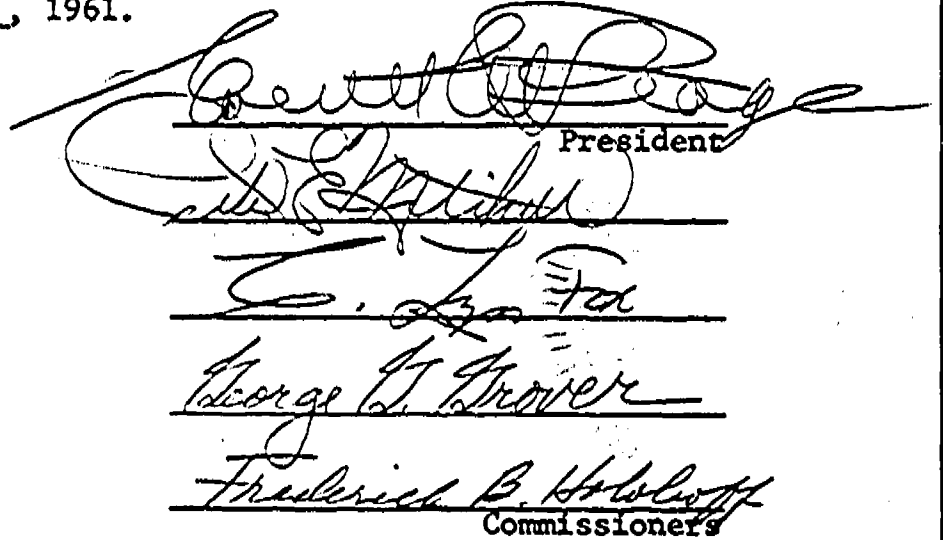 , 1961.
Everett C. McKeage
President
E. Mitchell
C. Lyn Fox
George G. Grover
Frederick B. Holoboff
Commissioners